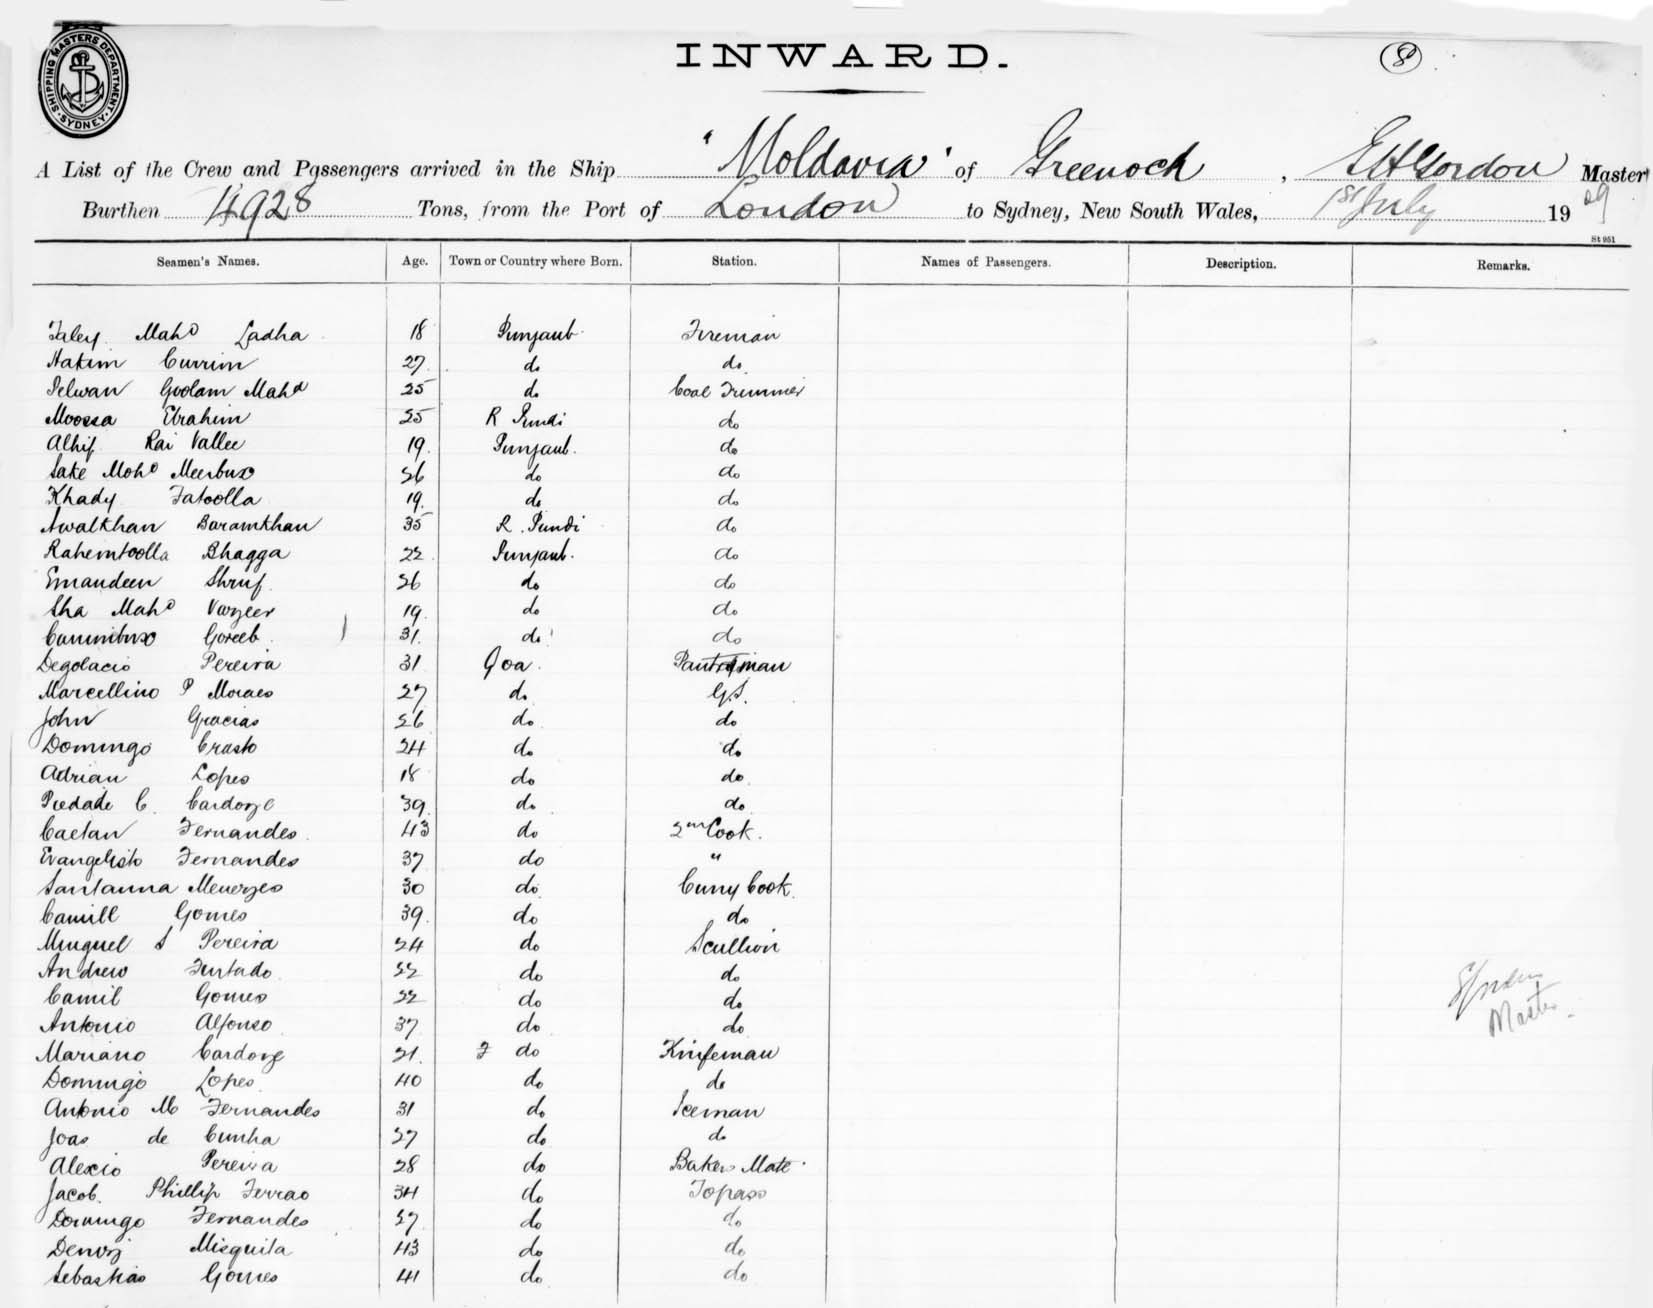 SHIPPING MASTERS DEPARTMENT · SYDNEY ·
INWARD.
8
A List of the Crew and Passengers arrived in the Ship "Moldavia" of Greenock, E H Gordon Master
Burthen 4928 Tons, from the Port of London to Sydney, New South Wales, 1st July 1909
St 951
Seamen's Names. Age. Town or Country where Born. Station. Names of Passengers. Description. Remarks.
Mahd Ladha 18 Punjaub Fireman
Hakim Currim 27 do do
Pelwan Goolam Mahd 25 do Coal Trimmer
Moossa Ebrahim 25 R Pindi do
Rai Vallee 19 Punjaub. do
Sake Mohd Meerbux 26 do do
Khady Fatoolla 19. do do
Awalkhan Baramkhan 35 R. Pindi do
Rahemtoolla Bhagga 22 Punjaub. do
Emandeen Shruf 26 do do
Sha Mahd Vazeer 19. do do
Curimbux Goreeb 31. do do
Degolacio Pereira 31 Goa. Pantryman
Marcellino P Moraes 27 do G.S.
John Gracias 26 do do
Domingo Crasto 24 do do
Adrian Lopes 18 do do
Piedade C. Cardoze 39 do do
Caetan Fernandes 43 do 2nd Cook.
Evangelisto Fernandes 37 do "
Santanna Menezes 30 do Curry Cook.
Camill Gomes 39. do do
Minguel S Pereira 24 do Scullion
Andrew Furtado 22 do do
Camil Gomes 22 do do
Antonio Alfonso 37 do do
Mariano Cardoze 21. do Knifeman
Domingo Lopes 40 do do
Antonio M Fernandes 31 do Iceman
Joao de Cunha 27 do do
Alexio Pereira 28 do Bakers Mate.
Jacob. Phillip Ferrao 34 do Topass
Domingo Fernandes 27 do do
Misquita 43 do do
Sebastiao Gomes 41 do do
Master.